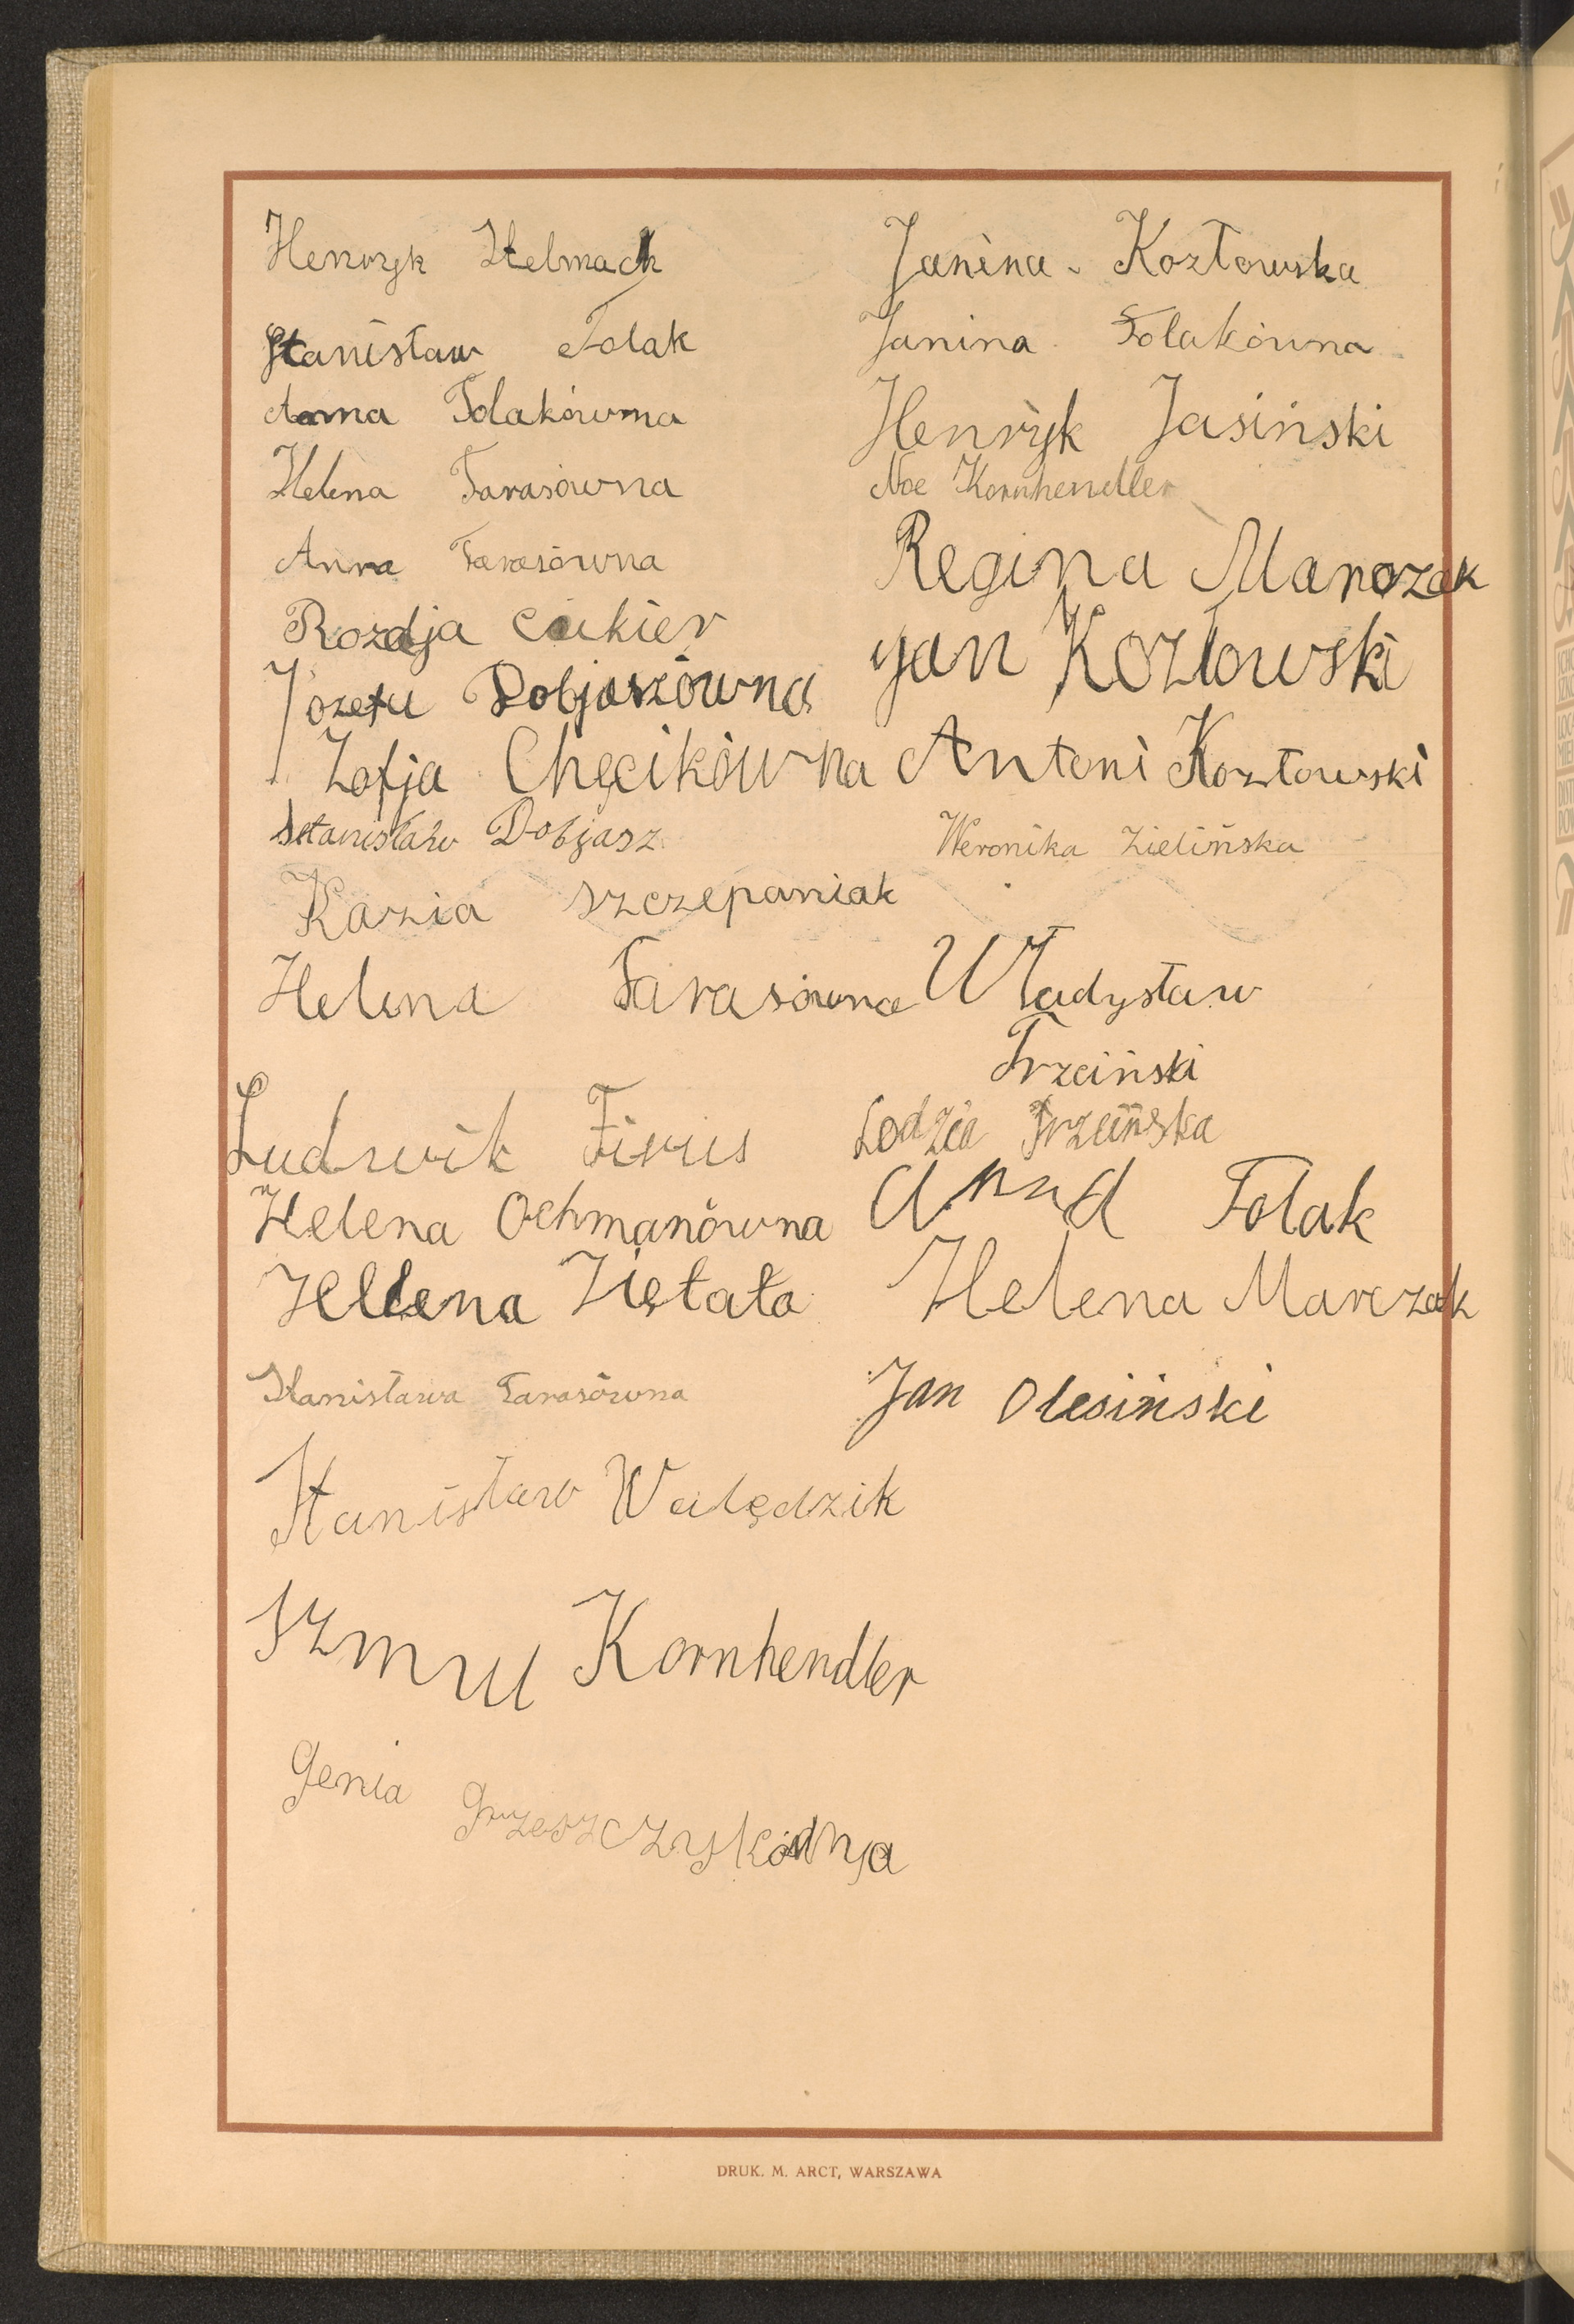 Henryk Stelmach
Stanisław Folak
Anna Folakówna
Helena Tarasówna
Anna Tarasówna
Rozdja Cukier
Józefa Dobjaszówna
Zofja Chęcikówna
Stanisław Dobjasz
Kazia Szczepaniak
Helena Tarasówna
Ludwik Firus
Helena Ochmanówna
Helena Ziętała
Stanisława Tarasówna
Stanisław Walędzik
Szmul Kornhendler
Genia Grzeszczykówna
Janina Kozłowska
Janina Folakówna
Henryk Jasiński
Noe Kornhendler
Regina Marczak
Jan Kozłowski
Antoni Kozłowski
Weronika Zielińska
Władysław
Trzciński
Lodzia Trzcińska
Anna Folak
Helena Marczak
Jan Olesiński
DRUK. M. ARCT, WARSZAWA